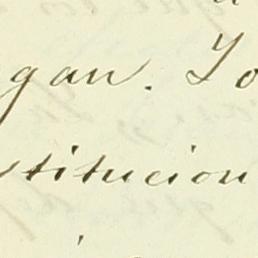 gan. To
stitucion